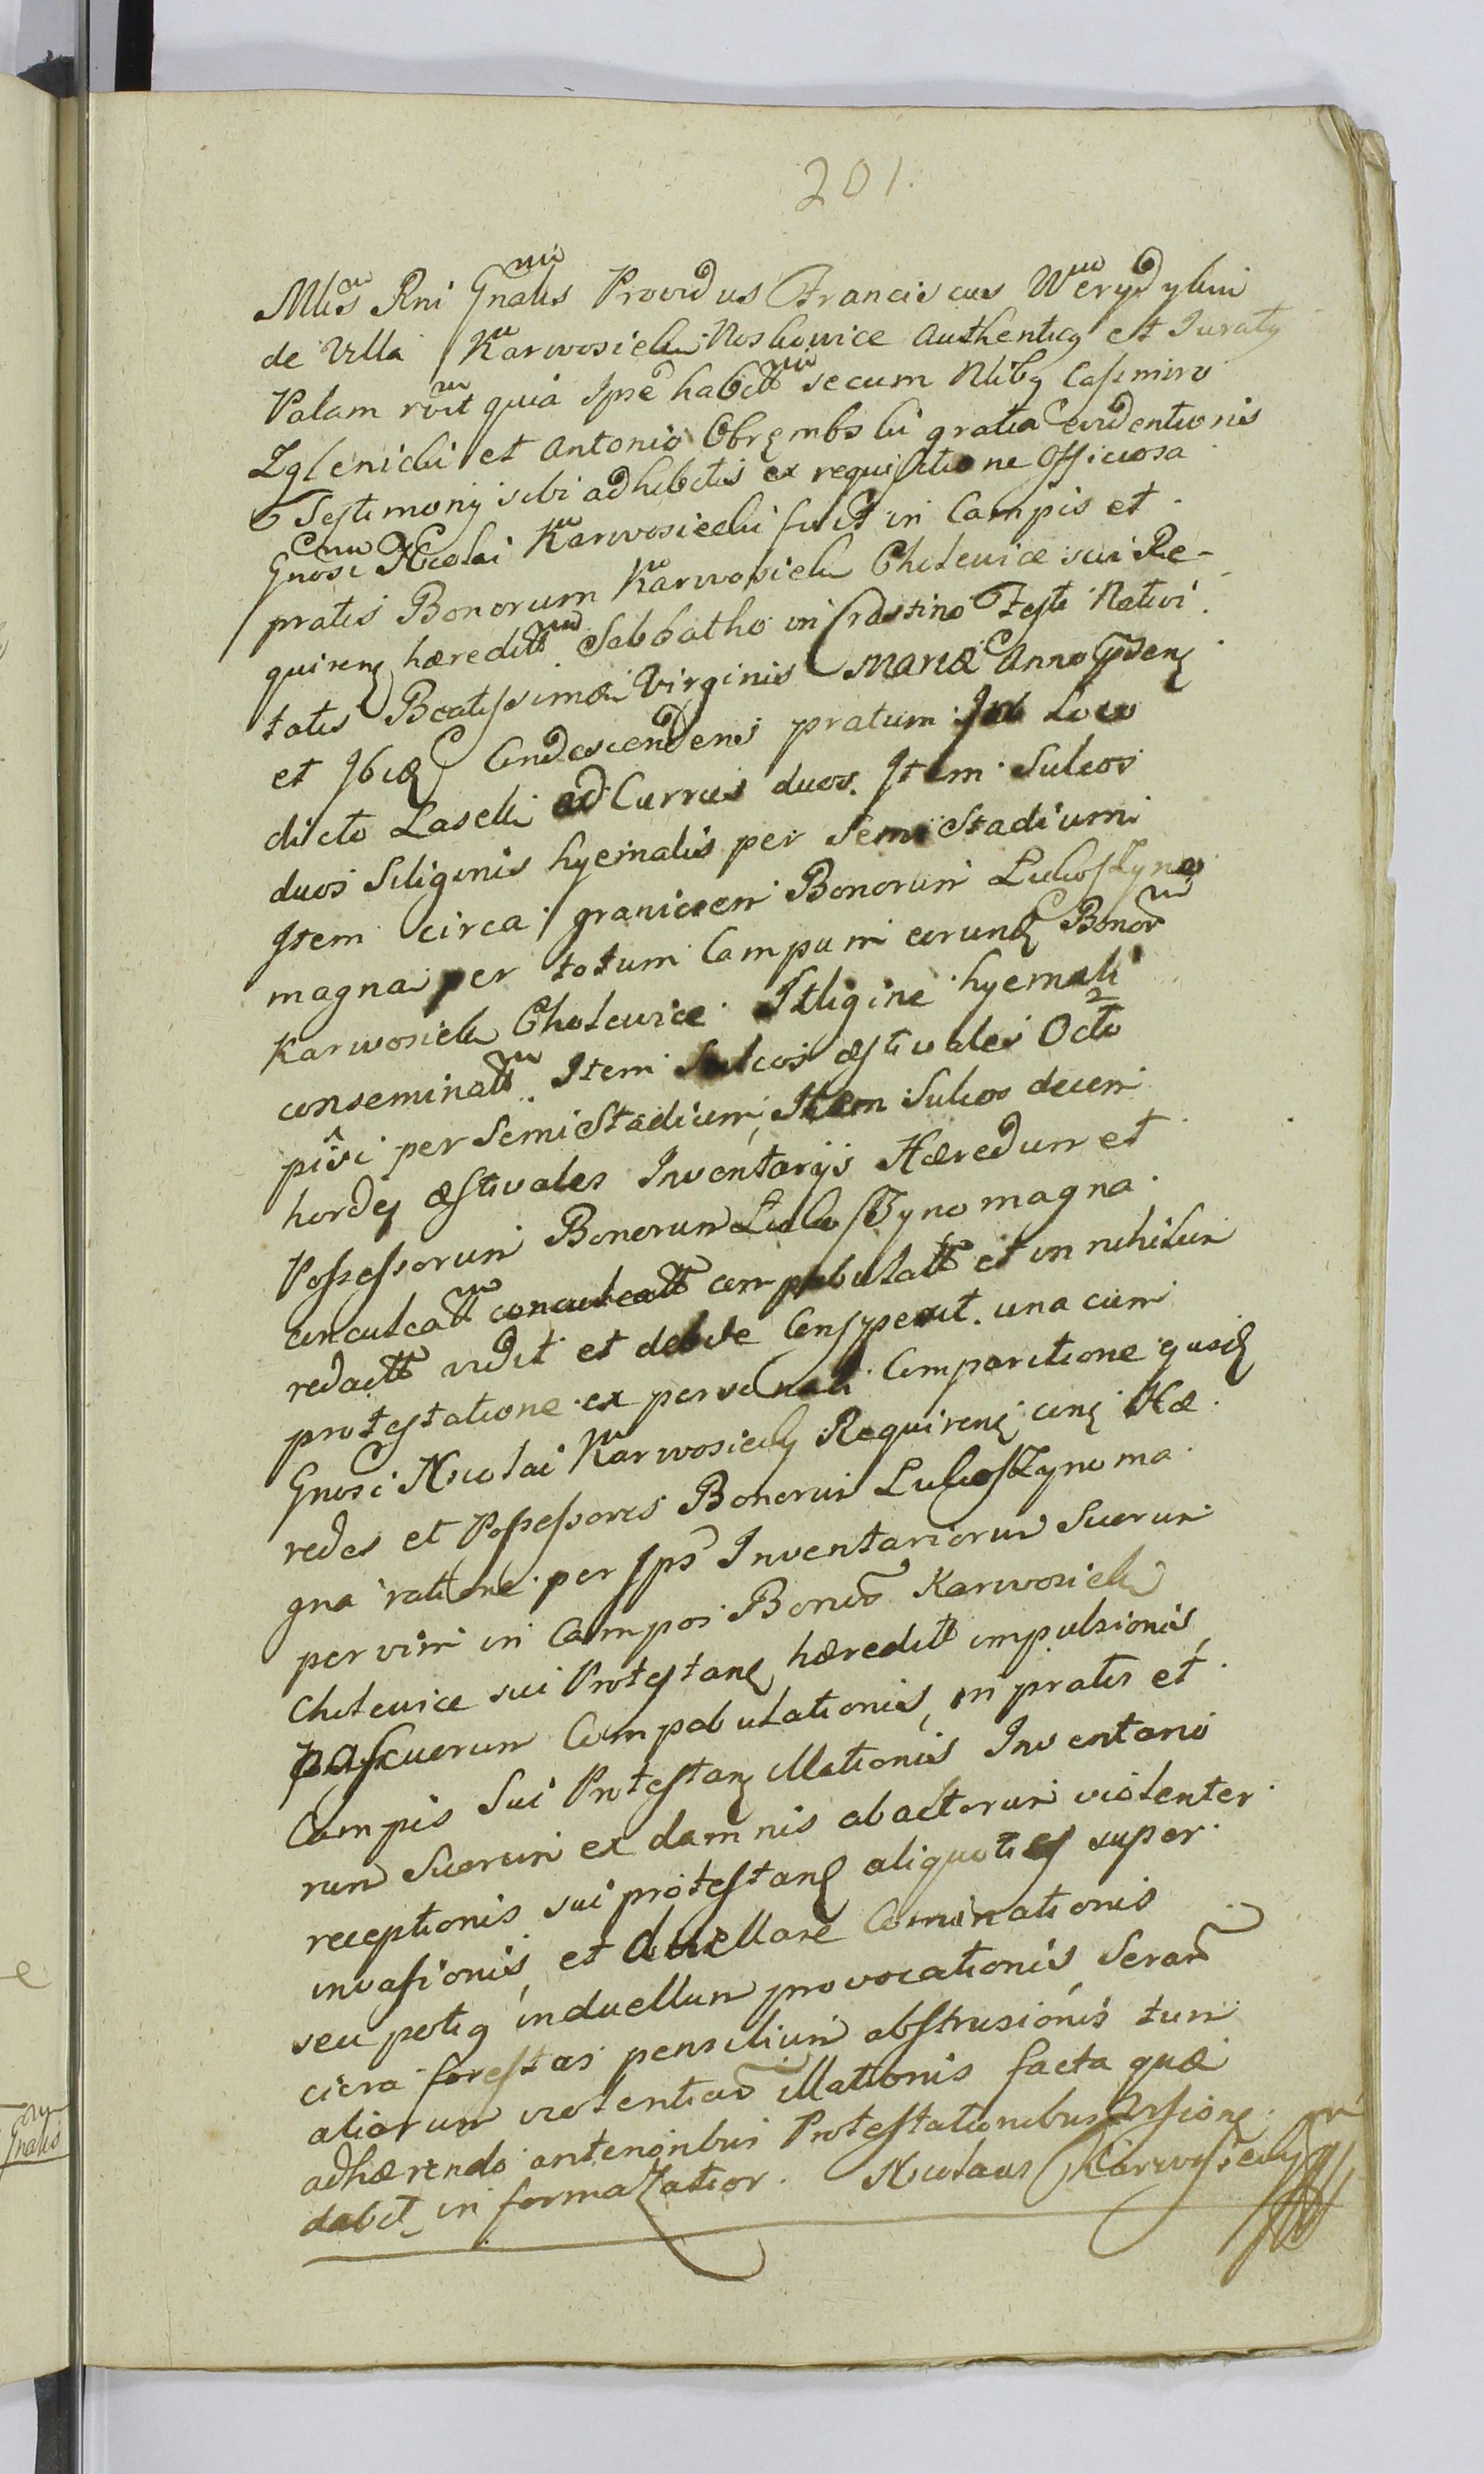 201.
Mlis Rni Gnalis Providus Franciscus Werydykin
de Villa Karwosieki Noskowice Authenticq et Juratq
Palam rvit quia Ipse habitt secum Nlibq Casimiro
Zglenicki et Antonio Obrembski gratia evidentioris
Testimonij sibi adhibitis ex requisitione Officiosa
Gnosi Nicolai Karwosiecki fuit in Campis et
pratis Bonorum Karwosieki Cholewice sui Re-
quirenꝭ hæreditt Sabbatho in Crastino Festi Nativi
tatis Beatissimæ Virginis Mariæ Anno Prdenꝭ
et Ibidꝫ Condescendens pratum Sub Loco
dicto Laseki ad Currus duos. Item Sulcos
duos Siliginis hyemalis per Semi Stadium
Item circa graniciem Bonorum Lukoszyno
magna per totum Campum eorundꝫ Bonor
Karwosieki Cholewice Siligine hyemali
conseminatt. Item Sulcos æstivales Octo
pisi per Semi Stadium, Item Sulcos decem
hordej æstivales Inventarijs Hæredum et
Possessorum Bonorum Lukoszyno magna
conculcatt conculcatt compabulatt et in nihilum
redactt vidit et debite Conspexit. una cum
protestatione ex personali Comparitione ejusdꝫ
Gnosi Nicolai Karwosiecky Requirenꝭ conꝭ Hæ
redes et Possessores Bonorum Lukoszyno ma
gna ratione per Ips Inventariorum Suorum
per vim in Campos Bonor Karwosieki
Cholewice sui Protestanꝭ hæreditt impulsionis,
pascuorum Compabulationis, in pratis et
Campis Sui Protestanꝭ illationis Inventario
rum Suorum ex damnis abactorum violenter
receptionis sui protestanꝭ aliquoties super
invasionis, et duellare Cominationis
seu potiq induellum provocationis, Seram
circa forestas pensilium abstrusionis tum
aliarum violentiar illationis facta quæ
adhærendo anterioribus Protestationibus
dabit in forma Latior. Nicolaus Karwosiecky